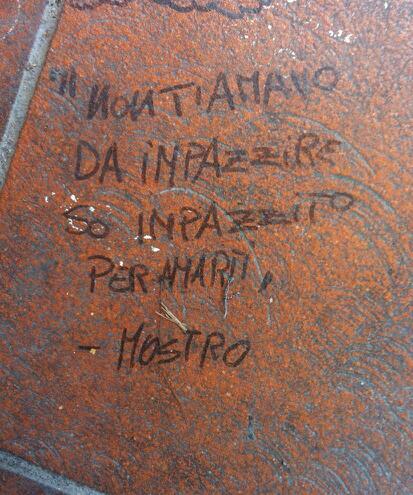 "NON TI AMAVO
DA IMPAZZIRE
SO IMPAZZITO
PER AMARTI"
- MOSTRO